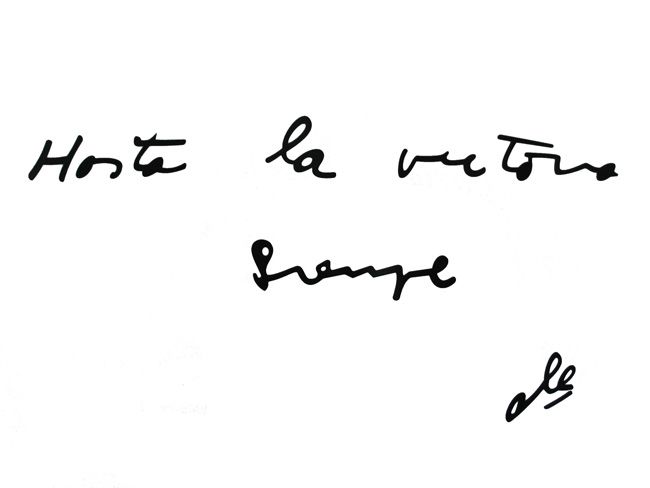 Hasta la victoria
Siempre
che